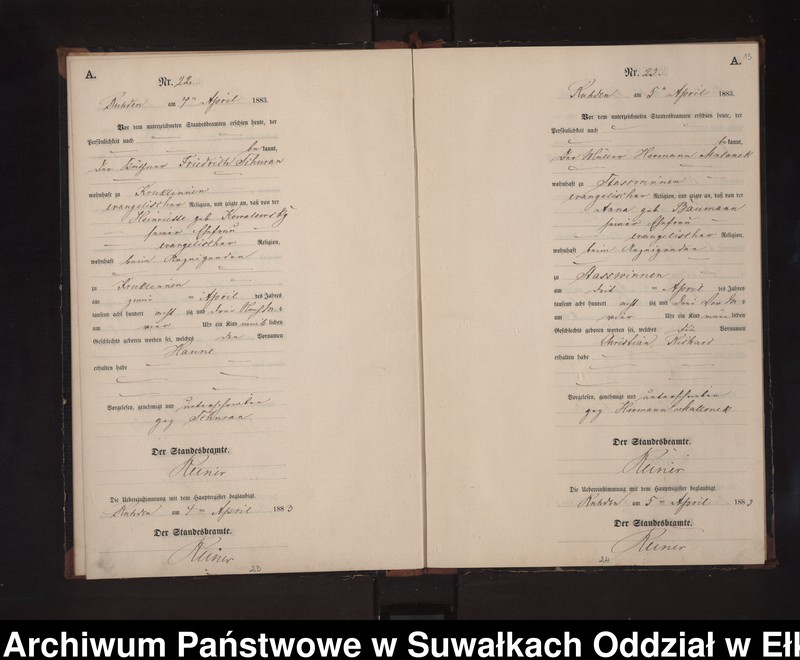 A.
Nr. 22.
Ruhden am 4ten April 1883.
Vor dem unterzeichneten Standesbeamten erschien heute, der
Persönlichkeit nach
be kannt,
der Friedrich Schwran
wohnhaft zu Kruklinnen
evangelischer Religion, und zeigte an, daß von der
Heinriette geb
seiner Ehefrau
evangelischer Religion,
wohnhaft beim Anzeigenden
zu Kruklinnen
am April des Jahres
tausend acht hundert acht zig und drei Nachm
um vier Uhr ein Kind weib lichen
Geschlechts geboren worden sei, welches den Vornamen
Hanne
erhalten habe
Vorgelesen, genehmigt und unterschrieben
gez Schwran
Der Standesbeamte.
Reiner
Die Uebereinstimmung mit dem Hauptregister beglaubigt.
Ruhden am 4ten April 1883
Der Standesbeamte.
Reiner
23
A.
Nr. 23.
Ruhden am 5ten April 1883.
Vor dem unterzeichneten Standesbeamten erschien heute, der
Persönlichkeit nach
be kannt,
der Müller Hermann
wohnhaft zu Stasswinnen
evangelischer Religion, und zeigte an, daß von der
Anna geb Baumann
seiner Ehefrau
evangelischer Religion,
wohnhaft beim Anzeigenden
zu Stasswinnen
am drit April des Jahres
tausend acht hundert acht zig und drei Vorm
um vier Uhr ein Kind männ lichen
Geschlechts geboren worden sei, welches die Vornamen
Christian Richard
erhalten habe
Vorgelesen, genehmigt und unterschrieben
gez Hermann
Der Standesbeamte.
Reiner
Die Uebereinstimmung mit dem Hauptregister beglaubigt.
Ruhden am 5ten April 1883
Der Standesbeamte.
Reiner
24
Archiwum Państwowe w Suwałkach Oddział w Ełk